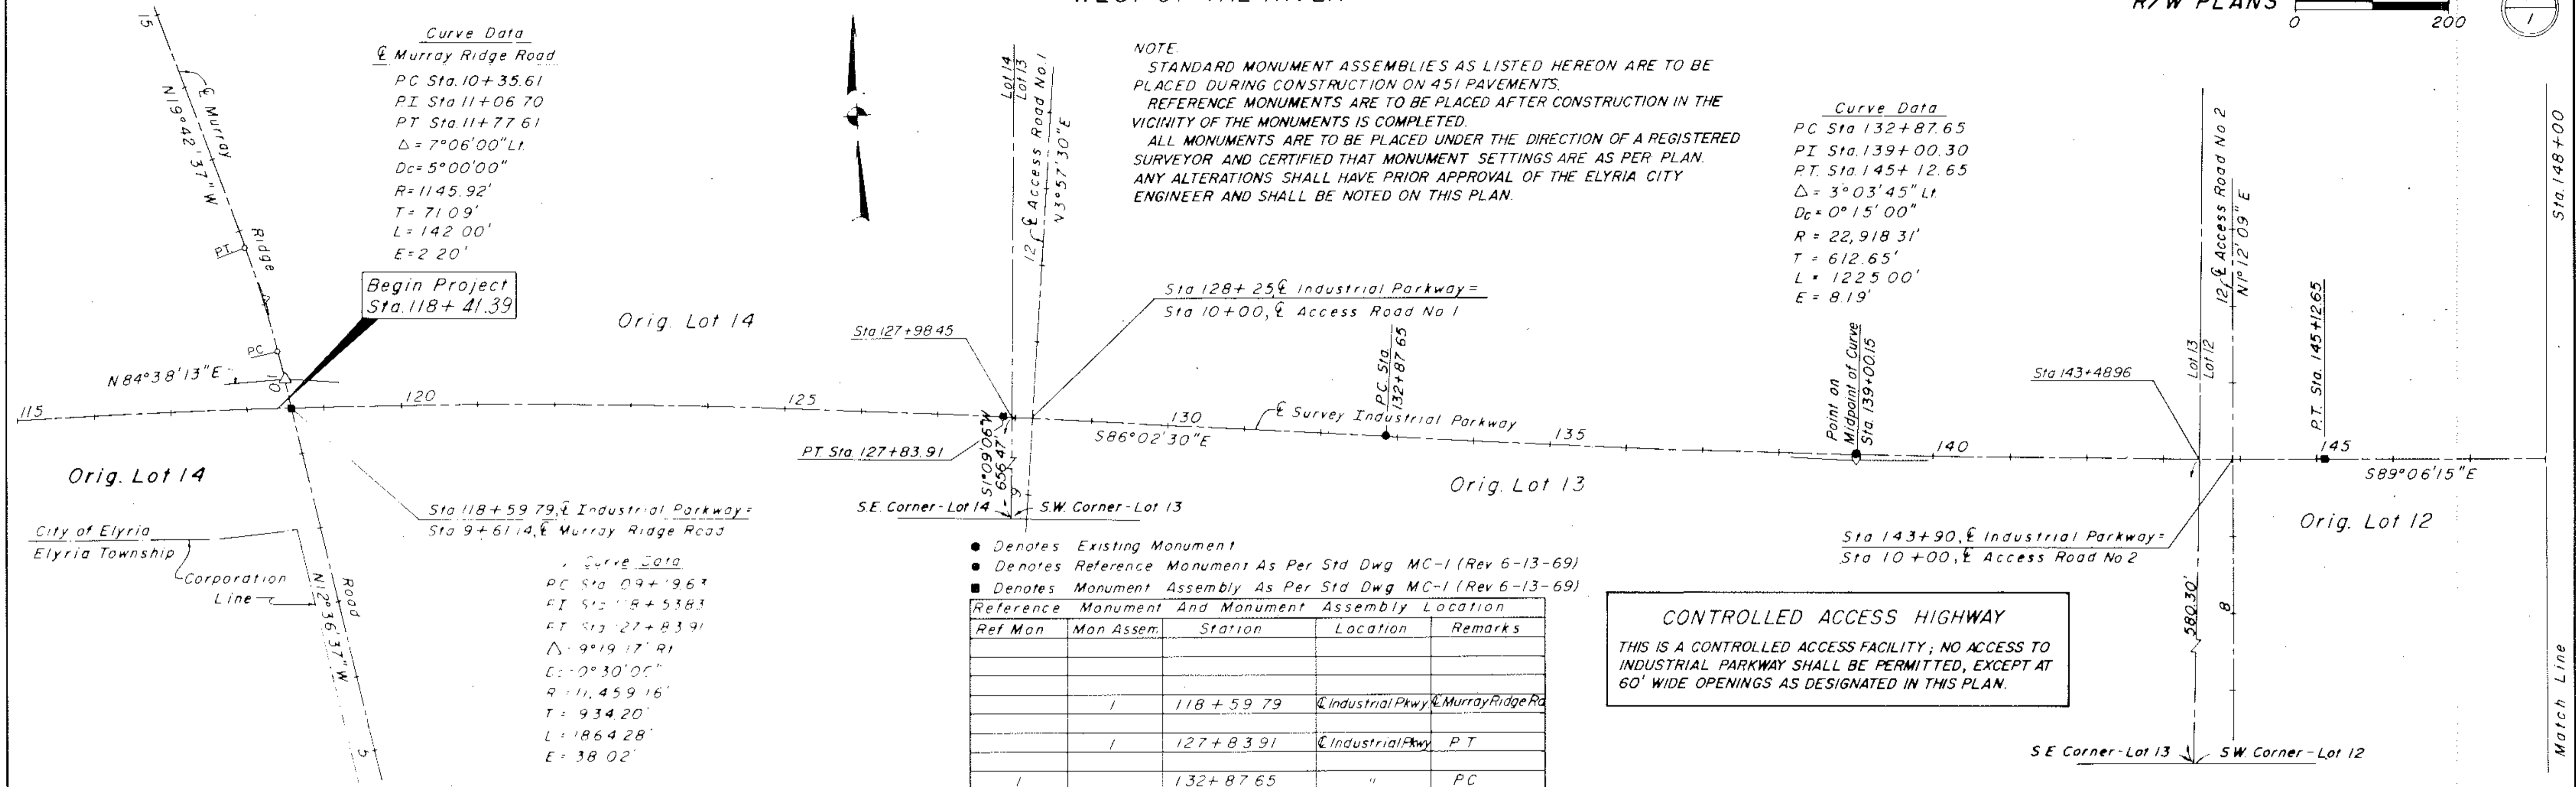 R/W PLANS
0 200
1
15
℄ Murray
Ridge
Road
N19°42'37"W
PT
PC
10
Curve Data
℄ Murray Ridge Road
PC Sta. 10+35.61
P.I Sta 11+06 70
PT Sta. 11+77 61
Δ = 7°06'00" Lt.
Dc= 5°00'00"
R= 1145.92'
T= 71 09'
L= 142 00'
E= 2 20'
Begin Project
Sta. 118+ 41.39
Orig. Lot 14
N84°38'13"E
115
120
125
130
135
140
145
Orig. Lot 14
City of Elyria
Elyria Township
Corporation
Line
N12°36'37"W
5
Sta 118+59 79, ℄ Industrial Parkway =
Sta 9+61 14, ℄ Murray Ridge Road
Curve Data
PT Sta 127+83 91
Δ = 9°19 17" Rt
R = 11,459 16'
T = 934.20'
L = 1864 28'
E = 38 02'
NOTE.
STANDARD MONUMENT ASSEMBLIES AS LISTED HEREON ARE TO BE
PLACED DURING CONSTRUCTION ON 451 PAVEMENTS.
REFERENCE MONUMENTS ARE TO BE PLACED AFTER CONSTRUCTION IN THE
VICINITY OF THE MONUMENTS IS COMPLETED.
ALL MONUMENTS ARE TO BE PLACED UNDER THE DIRECTION OF A REGISTERED
SURVEYOR AND CERTIFIED THAT MONUMENT SETTINGS ARE AS PER PLAN.
ANY ALTERATIONS SHALL HAVE PRIOR APPROVAL OF THE ELYRIA CITY
ENGINEER AND SHALL BE NOTED ON THIS PLAN.
Lot 14
Lot 13
12
℄ Access Road No. 1
N3°57'30"E
Sta 127+98 45
Sta 128+ 25, ℄ Industrial Parkway =
Sta 10+00, ℄ Access Road No 1
PT. Sta. 127+83.91
S1°09'06"W
656 47'
9
S.E. Corner - Lot 14
S.W. Corner - Lot 13
S86°02'30"E
℄ Survey Industrial Parkway
P.C. Sta.
132+87 65
Orig. Lot 13
Point on
Midpoint of Curve
Sta. 139+00.15
Curve Data
PC Sta 132+87.65
PI Sta. 139+00.30
P.T. Sta. 145+12.65
Δ = 3°03'45" Lt.
Dc = 0°15'00"
R = 22,918 31'
T = 612.65'
L = 1225 00'
E = 8.19'
Sta 143+48 96
Lot 13
Lot 12
12
℄ Access Road No 2
N1°12'09"E
P.T. Sta. 145+12.65
S89°06'15"E
Sta. 148+00
Match Line
Sta 143+90, ℄ Industrial Parkway =
Sta 10+00, ℄ Access Road No 2
Orig. Lot 12
580.30'
8
S E Corner - Lot 13
S W. Corner - Lot 12
● Denotes Existing Monument
● Denotes Reference Monument As Per Std Dwg MC-1 (Rev 6-13-69)
■ Denotes Monument Assembly As Per Std Dwg MC-1 (Rev 6-13-69)
Reference Monument And Monument Assembly Location
Ref Mon Mon Assem. Station Location Remarks
1 118 + 59 79 ℄ Industrial Pkwy ℄ Murray Ridge Rd
1 127+83 91 ℄ Industrial Pkwy P T
1 132+ 87 65 " PC
CONTROLLED ACCESS HIGHWAY
THIS IS A CONTROLLED ACCESS FACILITY; NO ACCESS TO
INDUSTRIAL PARKWAY SHALL BE PERMITTED, EXCEPT AT
60' WIDE OPENINGS AS DESIGNATED IN THIS PLAN.